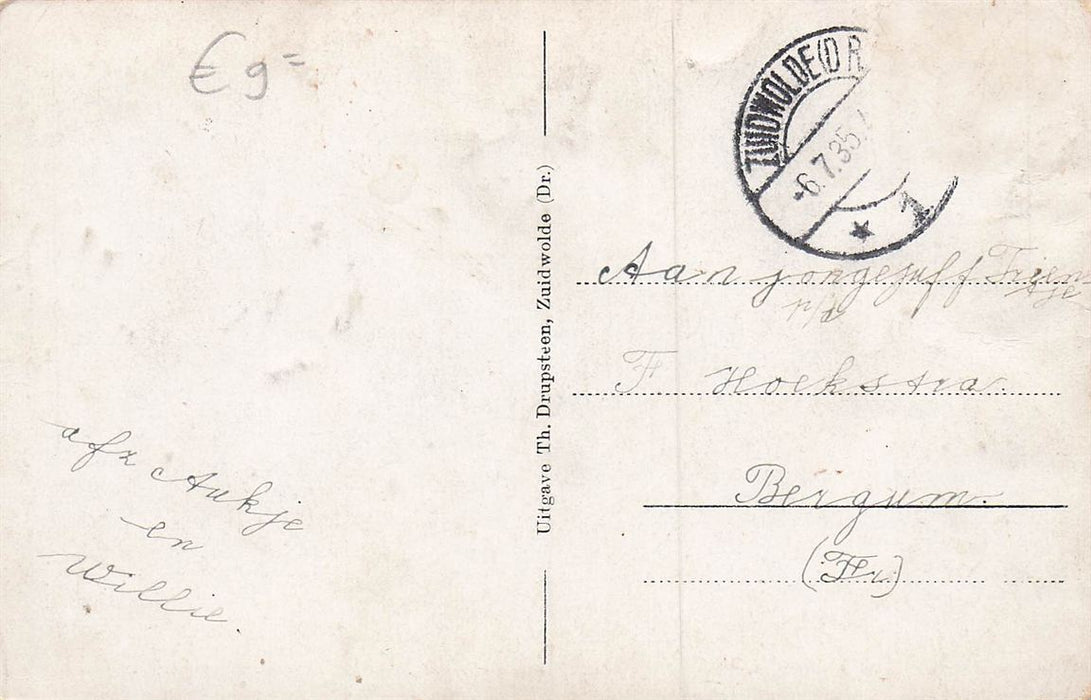 € 9=
ZUIDWOLDE (DR
-6.7.35.
* 1
Uitgave Th. Drupsteen, Zuidwolde (Dr.)
Aan jongejuff
F Hoekstra
Bergum.
(Fr.)
afz Aukje
en
Willie.